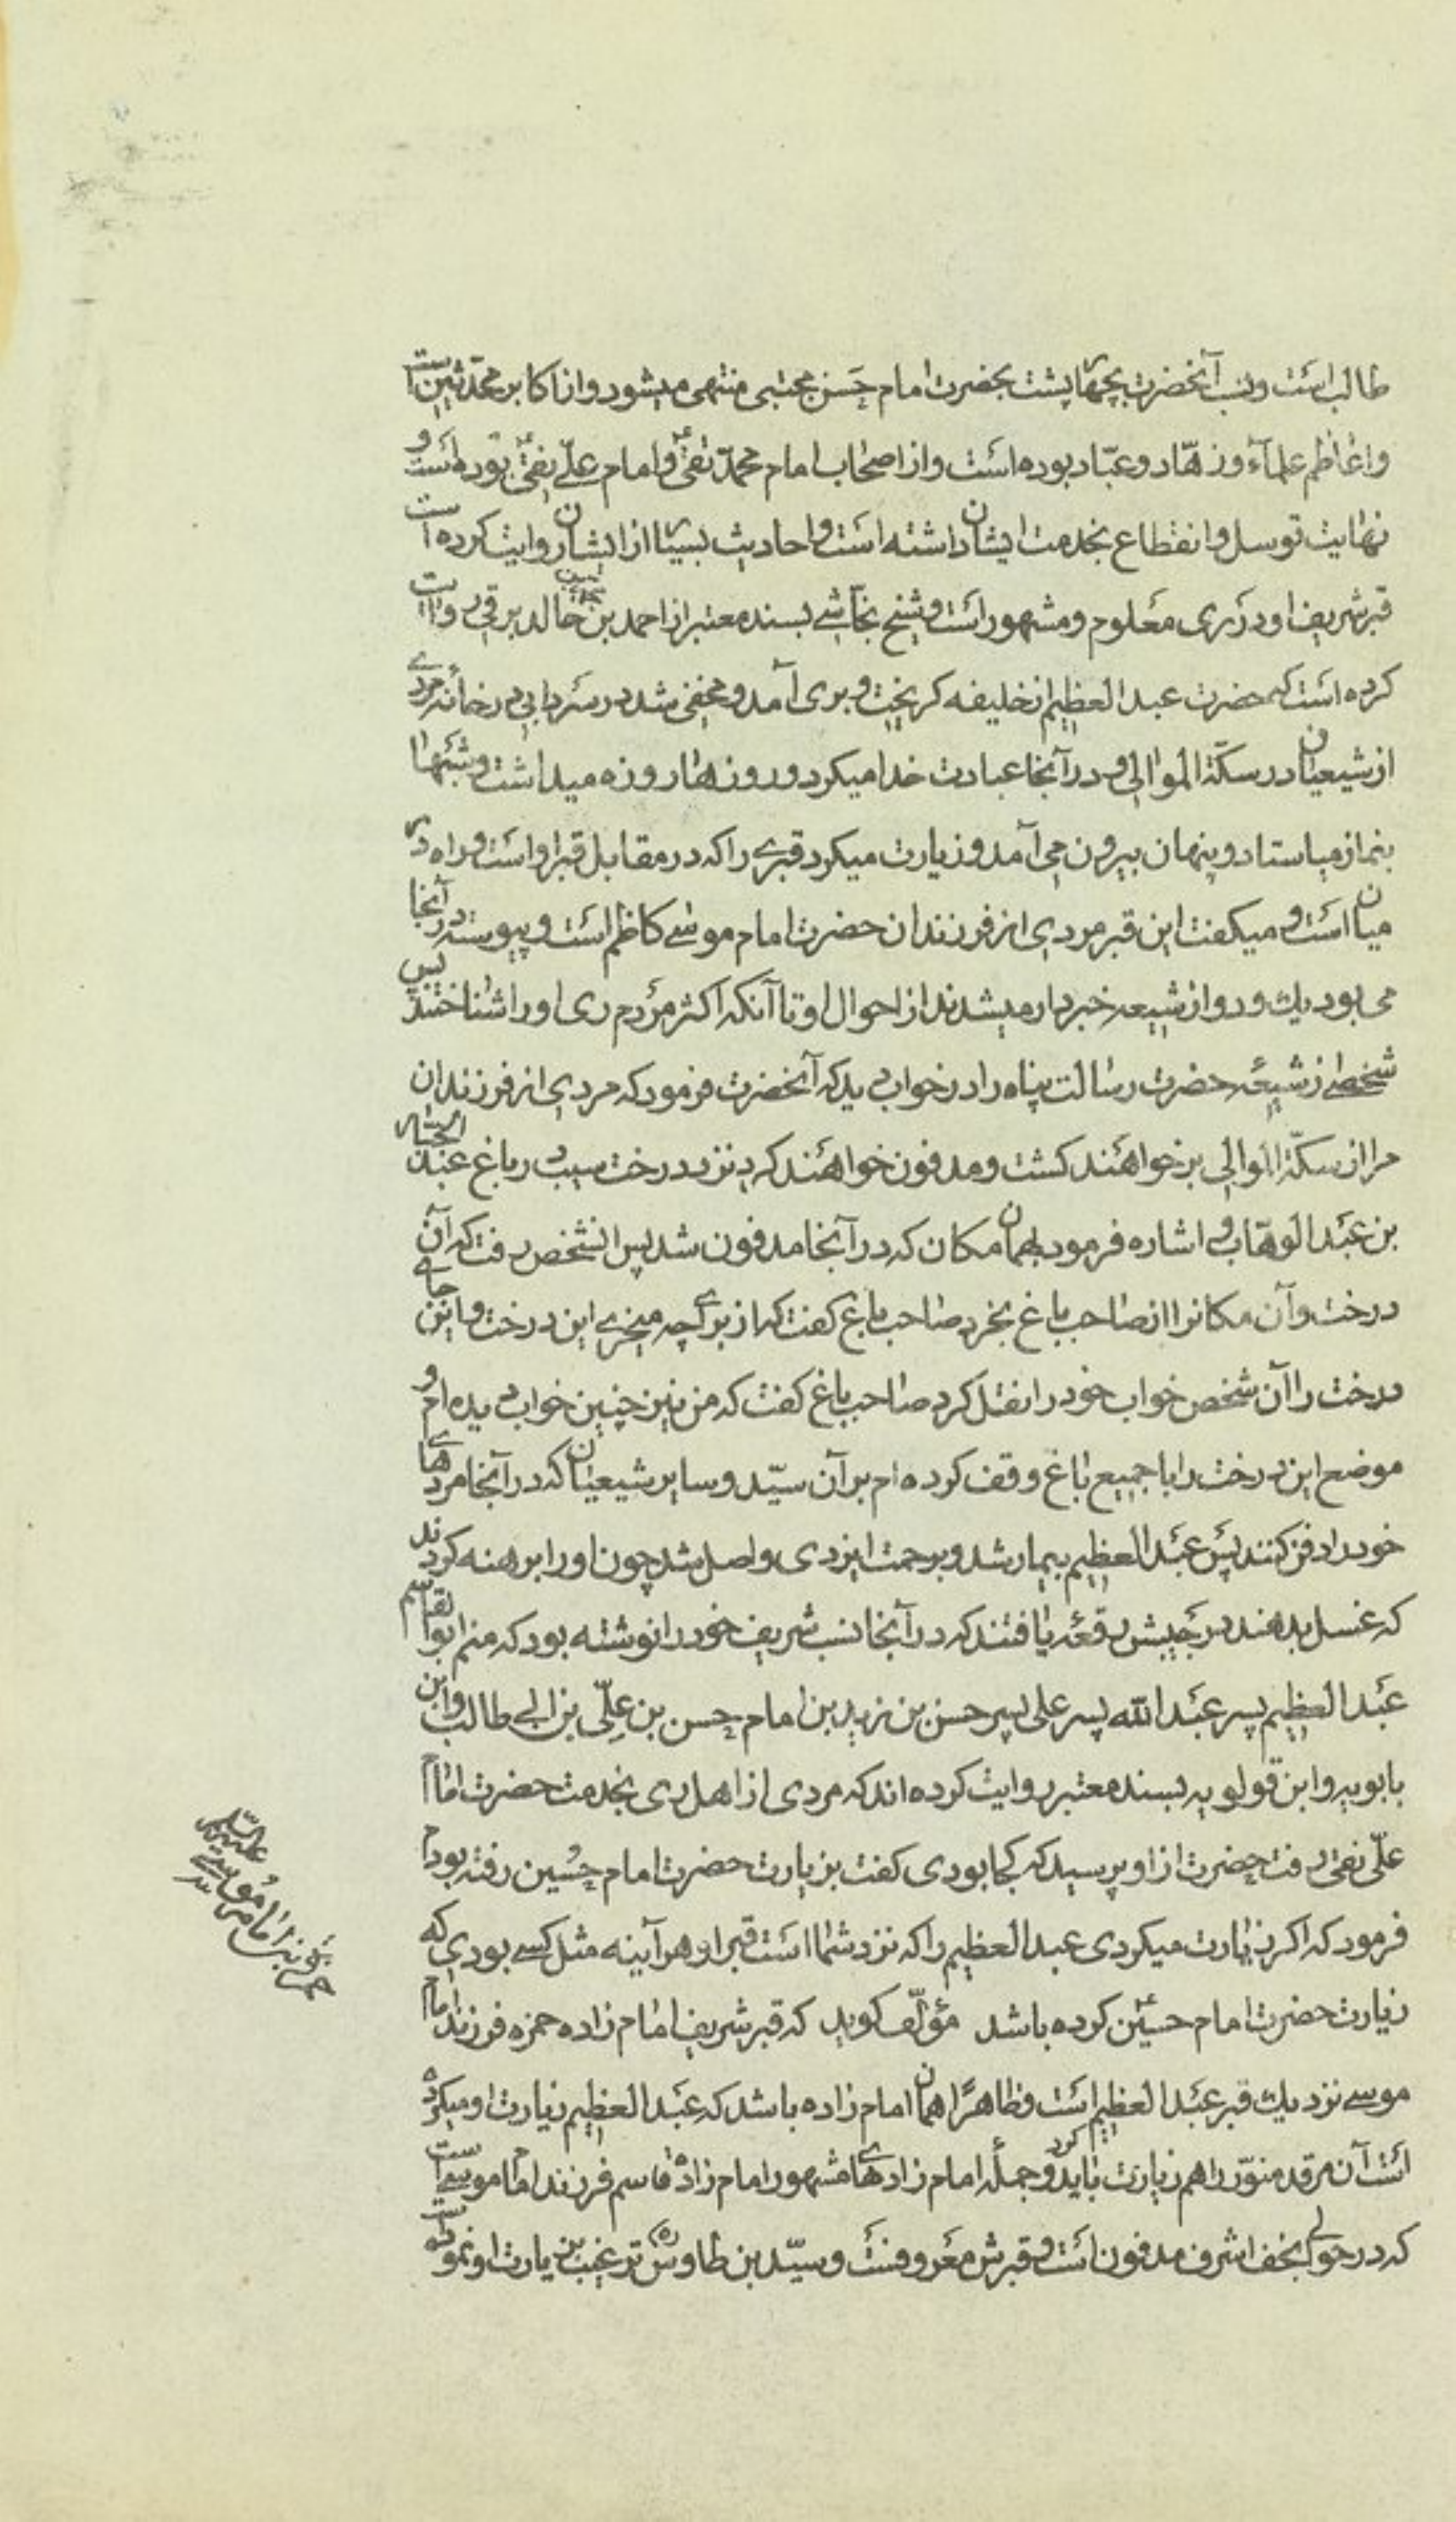 طالب است ونسب آنحضرت بچهار پشت بحضرت امام حسن مجتبی منتهی میشود واز اکابر محدثین است
واعاظم علمآء وزهّاد وعبّاد بوده است واز اصحاب امام محمّد تقیؑ وامام علی نقیؑ بوده است و
نهایت توسل وانقطاع بخدمت ایشان داشته است واحادیث بسیار از ایشان روایت کرده است
قبر شریف او در ری معلوم ومشهور است وشیخ نجّاشی بسند معتبر از احمد بن محمد بن خالد برقی روایت
کرده است که حضرت عبد العظیم از خلیفه کریخت وبری آمد ومخفی شد در سردابی در خانهٔ مردے
از شیعیان در سکّة الموالی و در آنجا عبادت خدا میکرد وروزها روزه میداشت وشبها
بنماز میاستاد وپنهان بیرون می آمد وزیارت میکرد قبرے را که در مقابل قبر او است وراه در
میان است و میکفت این قبر مردی از فرزندان حضرت امام موسٰی کاظم است وپیوسته در آنجا
می بود یك ودو از شیعه خبردار میشدند از احوال او تا آنکه اکثر مردم ری او را شناختند پس
شخصے از شیعه حضرت رسالت پناه را در خواب دید که آنحضرت فرمود که مردی از فرزندان
مرا از سکّة الموالی بر خواهند کشت ومدفون خواهند کرد نزد درخت سیب در باغ عبد الجبّار
بن عبد الوهّاب و اشاره فرمود بهمان مکان که در آنجا مدفون شد پس آنشخص رفت که آن
درخت وآن مکانرا از صاحب باغ بخرد صاحب باغ کفت که از برای چه میخرے این درخت و این جاے
درخت را آن شخص خواب خود را نقل کرد صاحب باغ کفت که من نیز چنین خواب دیده ام و
موضع این درخت را با جمیع باغ وقف کرده ام بر آن سیّد و سایر شیعیان که در آنجا مردهاے
خود را دفن کنند پس عبد العظیم بیمار شد وبرحمت ایزدی واصل شد چون او را برهنه کردند
که غسل بدهند در جیبش رقعه یافتند که در آنجا نسب شریف خود را نوشته بود که منم ابو القاسم
عبد العظیم پسر عبد الله پسر علی پسر حسن بن زید بن امام حسن بن علّی بن ابے طالب وابن
بابویه وابن قولویه بسند معتبر روایت کرده اند که مردی از اهل ری بخدمت حضرت امام
علّی نقی رفت حضرت از او پرسید که کجا بودی کفت بزیارت حضرت امام حسین رفته بودم
فرمود که اکر زیارت میکردی عبد العظیم را که نزد شما است قبر او هر آینه مثل کسے بودی که
زیارت حضرت امام حسینؑ کرده باشد مؤلّف کوید که قبر شریف امام زاده حمزه فرزند امام
موسے نزدیك قبر عبد العظیم است وظاهرًا همان امام زاده باشد که عبد العظیم زیارت او میکرده
است آن مرقد منوّر را هم زیارت باید کرد وجملهٔ امام زادهاے مشهور امام زاده قاسم فرزند امام موسے است
که در حوالے نجف اشرف مدفون است و قبرش معروفست وسیّد بن طاوس ره ترغیب بزیارت او نموده است